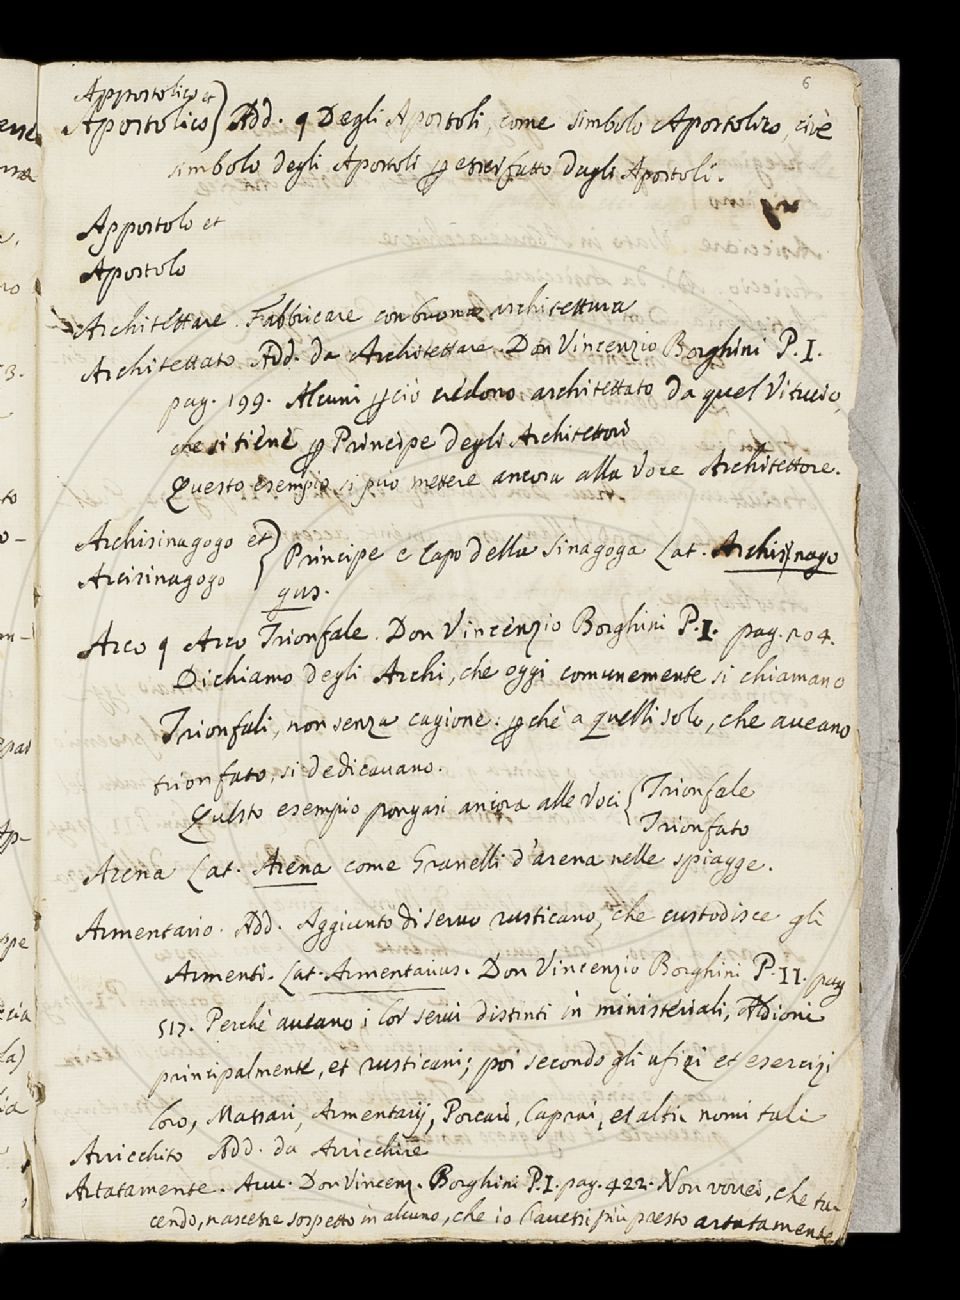 6
Appostolico et
Apostolico } Add. q Degli Apostoli, come simbolo Apostolico, cioè
simbolo degli Apostoli ꝑ esser fatto dagli Apostoli.
Appostolo et
Apostolo
Architettare. Fabbricare con buona architettura
Architettato. Add. da Architettare. Don Vincenzio Borghini P. I.
pag. 199. Alcuni ꝑciò credono architettato da quel Vitruvio,
che si tiene ꝑ Principe degli Architettori
Questo esempio si può mettere ancora alla Voce Architettore.
Archisinagogo et } Principe e Capo della Sinagoga Lat. Archisynago
Arcisinagogo
gus.
Arco q Arco Trionfale. Don Vincenzio Borghini P. I. pag. 104.
Dichiamo degli Archi, che oggi comunemente si chiamano
Trionfali, non senza cagione: ꝑchè a quelli solo, che aveano
trionfato, si dedicavano.
Questo esempio pongasi ancora alle Voci { Trionfale
Trionfato
Arena Lat. Arena come Granelli d'arena nelle spiagge.
Armentario. Add. Aggiunto di servo rusticano, che custodisce gli
Armenti. Lat. Armentarius. Don Vincenzio Borghini P. II. pag
517. Perchè aveano i lor servi distinti in ministeriali,
principalmente, et rusticani; poi secondo gli ufizi et esercizi
loro, Massari, Armentarij, Porcari, Caprai, et altri nomi tali
Arricchito Add. da Arricchire
Artatamente. Avv. Don Vincenz. Borghini P. I. pag. 422. Non vorrei, che ta-
cendo, nascesse sospetto in alcuno, che io l'avessi più presto artatamente